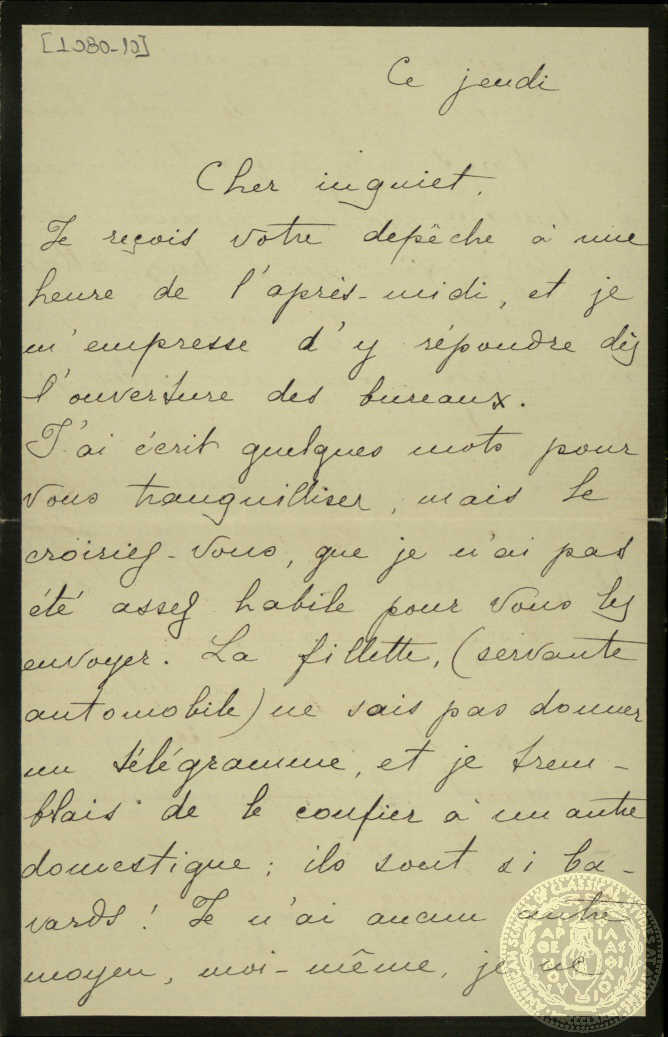 [1080-10]
Ce jeudi
Cher inquiet,
Je reçois votre depêche à une
heure de l'après-midi, et je
m'empresse d'y répondre dès
l'ouverture des bureaux.
J'ai écrit quelques mots pour
vous tranquilliser, mais le
croiriez-vous, que je n'ai pas
été assez habile pour vous les
envoyer. La fillette, (servante
automobile) ne sais pas donner
un télégramme, et je trem-
blais de le confier à un autre
domestique; ils sont si ba-
vards! Je n'ai aucun autre
moyen, moi-même, je ne